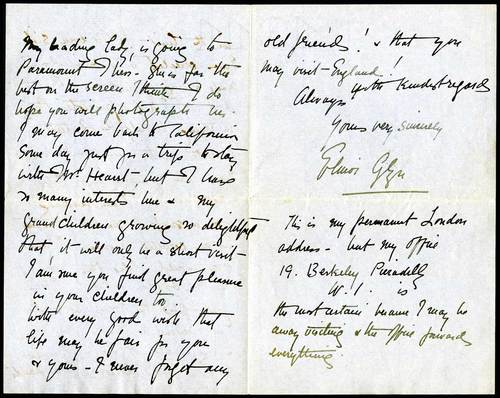 My leading lady, is going to
Paramount I hear. She is far the
best on the screen I think I do
hope you will photograph her.
I may come back to California
some day just for a trip to stay
with Mr. Hearst, but I have
so many interests here & my
grandchildren growing so delightful
that it will only be a short visit -
I am sure you find great pleasure
in your children too
With every good wish that
life may be fair for you
& yours - I never forget any
old friends! & that you
may visit England!
Always with kindest regards
Yours very sincerely
Elinor Glyn
This is my permanent London
address - but my office
19. Berkeley Piccadilly
W.1. is
the most certain because I may be
away visiting & the office forwards
everything